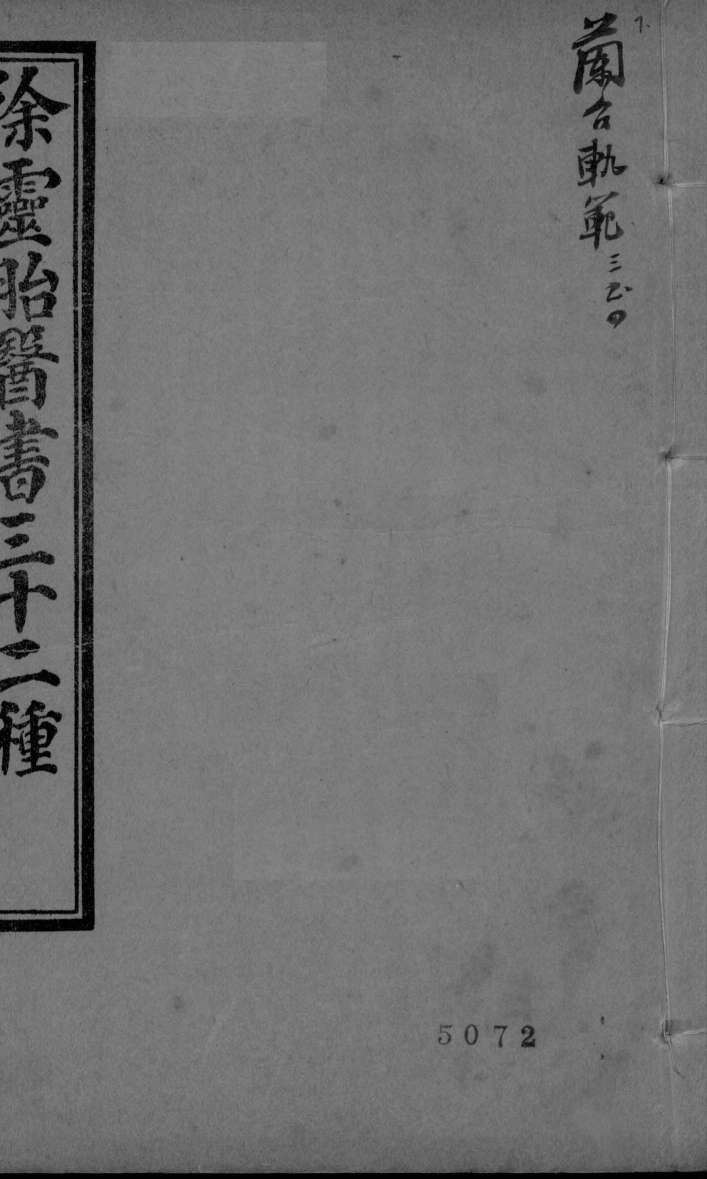 7.
蘭台軌範 三至四
徐靈胎醫書三十二種
5072